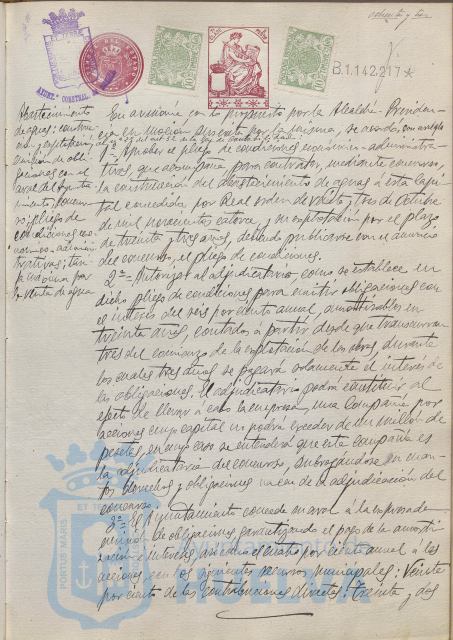 ochenta y tres
B.1.142.217*
Abastecimiento
de aguas: construc-
ción y explotación,
emisión de obli-
gaciones con el
aval del Ayunta-
miento;
pliego de
condiciones eco-
nómico-adminis-
trativas;
máxima por
la venta de agua
En armonía con lo propuesto por la Alcaldía-Presiden-
cia en moción suscrita por la misma, se acordó, con arreglo
1º Aprobar el pliego de condiciones económico-administra-
tivas que acompaña para contratar, mediante concurso,
la construcción del abastecimiento de aguas á esta capi-
tal concedida por Real orden de veinte y tres de Octubre
de mil novecientos catorce, y su explotación por el plazo
de treinta y tres años, debiendo publicarse con el anuncio
del concurso, el pliego de condiciones.
2º Autorizar al adjudicatario como se establece en
dicho pliego de condiciones, para emitir obligaciones con
el interés del seis por ciento anual, amortizables en
treinta años, contados á partir desde que transcurran
tres del comienzo de la explotación de las obras, durante
los cuales tres años se pagará solamente el interés de
las obligaciones. El adjudicatario podrá constituir al
efecto de llevar á cabo la empresa, una Compañía por
acciones cuyo capital no podrá exceder de un millón de
pesetas, en cuyo caso se entenderá que esta Compañía es
la adjudicataria del concurso, subrogándose en cuan-
tos derechos y obligaciones nazcan de la adjudicación del
concurso.
3º El Ayuntamiento concede su aval á la expresada
emisión de obligaciones garantizando el pago de la amorti-
zación é intereses, así como el cuatro por ciento anual á las
acciones con los siguientes recursos municipales: Veinte
por ciento de las contribuciones directas: Treinta y dos
PORTUS MARIS